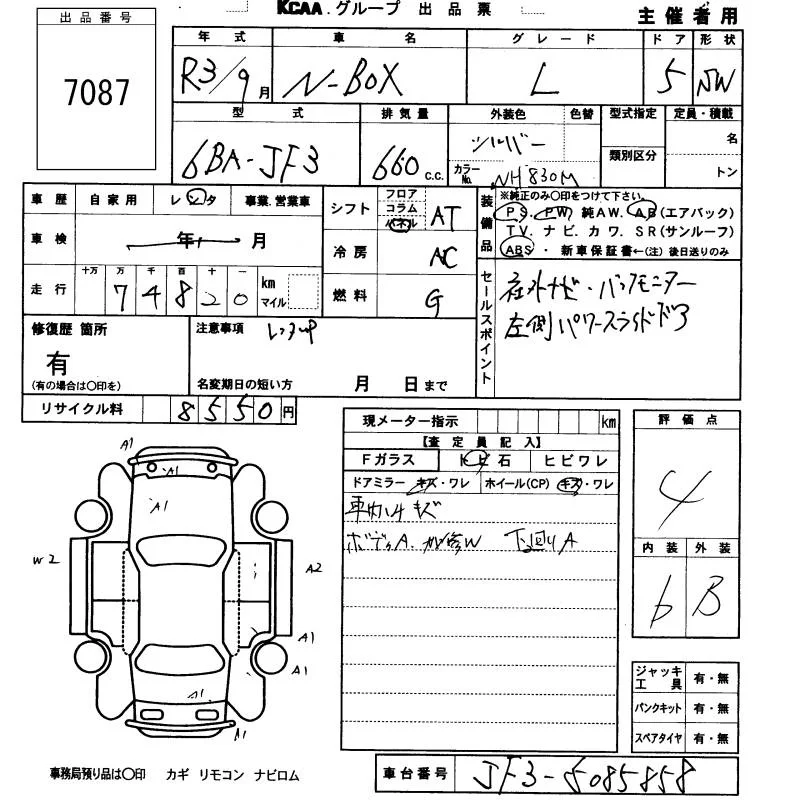 KCAA.グループ 出品票
主催者用
出品番号
7087
年式 車名 グレード ドア 形状
R3/9月 N-BOX L 5
型式 排気量 外装色 色替 型式指定 定員・積載
6BA-JF3 660 c.c. シルバー カラーNo. NH830M 類別区分 名 トン
車歴 自家用 レンタ 事業.営業車
車検 年 月
走行 十万 万 千 百 十 一
74820 km マイル
シフト フロア コラム パネル AT
冷房 AC
燃料 G
装備品 ※純正のみ〇印をつけて下さい。
PS. PW 純AW. AB(エアバック)
TV. ナビ. カワ. SR(サンルーフ)
ABS ・ 新車保証書←(注) 後日送りのみ
セールスポイント
社外ナビ・バックモニター
左側パワースライドドア
修復歴 箇所
有
(有の場合は〇印を)
注意事項 レンタUP
名変期日の短い方 月 日まで
リサイクル料 8550円
現メーター指示 km
【査定員記入】
Fガラス トビ石 ヒビワレ
ドアミラー キズ・ワレ ホイール(CP) キズ・ワレ
車内シミ キズ
ボディA. 下廻りA
評価点
4
内装 外装
b B
ジャッキ工具 有・無
パンクキット 有・無
スペアタイヤ 有・無
A1
A1
A1
W2
A2
A1
A1
A1
A1
事務局預り品は〇印 カギ リモコン ナビロム
車台番号 JF3-5085858